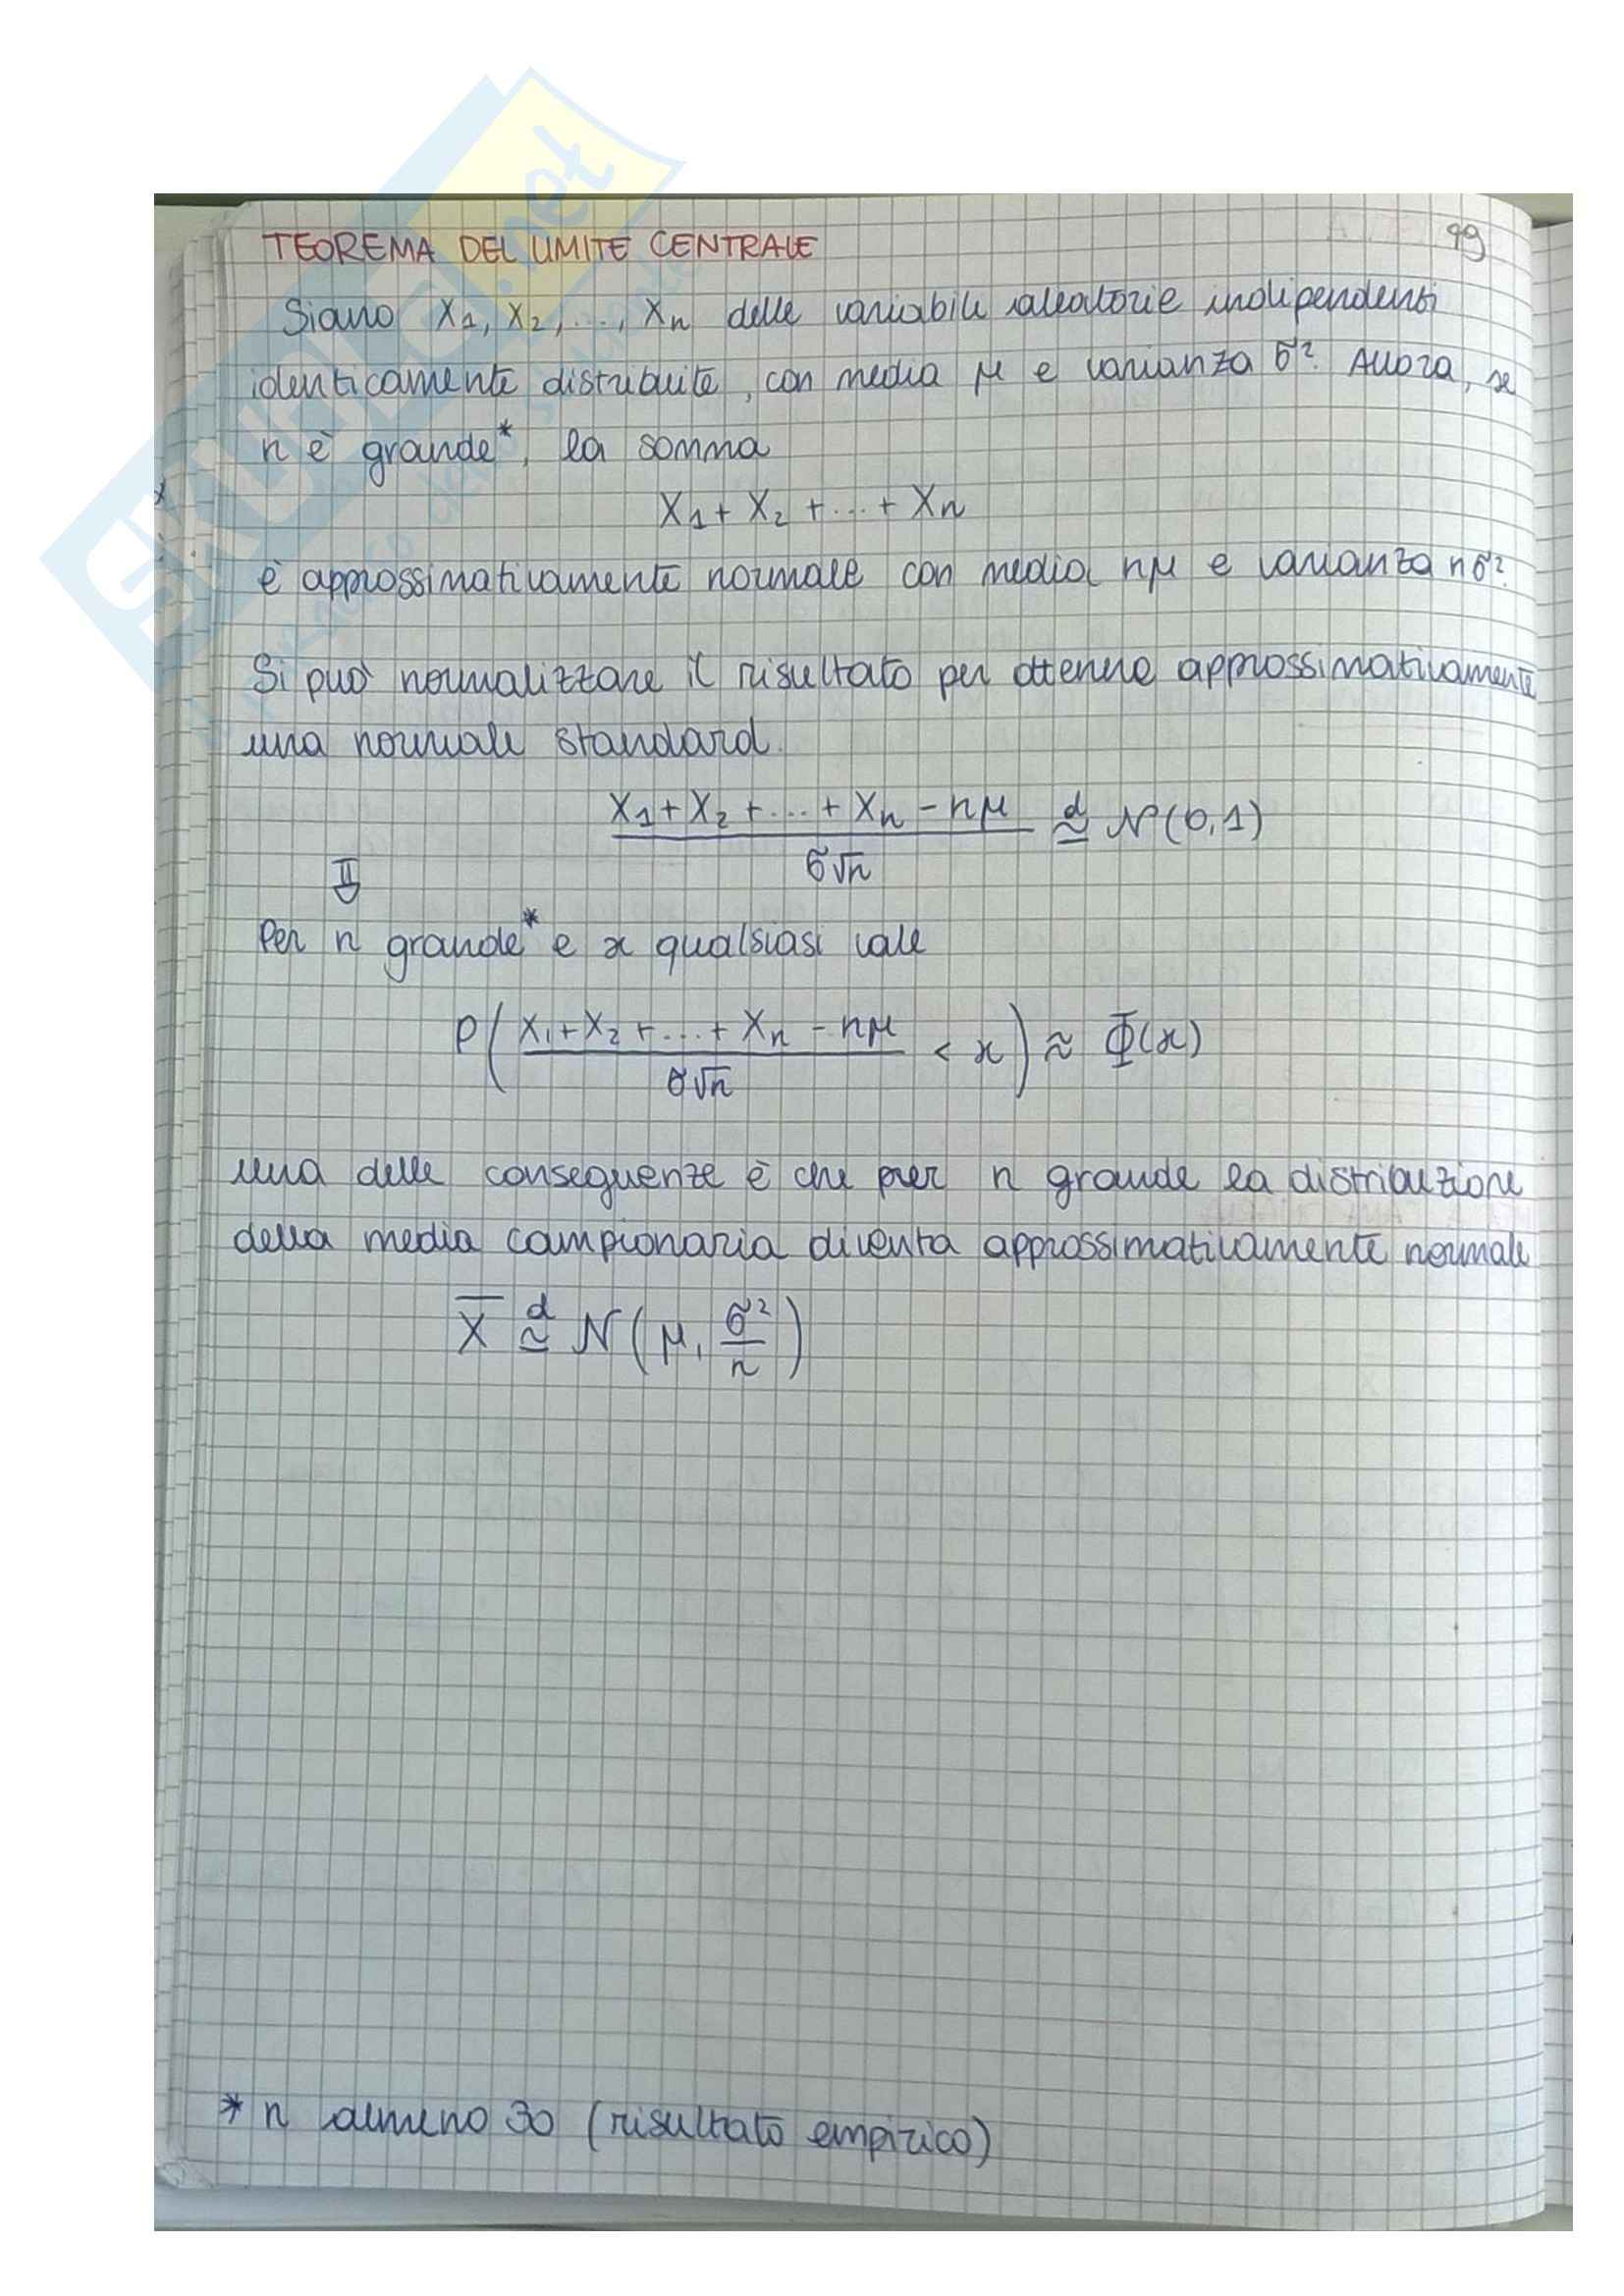 TEOREMA DEL LIMITE CENTRALE
99
Siano X₁, X₂, ..., Xₙ delle variabili aleatorie indipendenti
identicamente distribuite, con media μ e varianza σ². Allora, se
n è grande*, la somma
X₁ + X₂ + ... + Xₙ
è approssimativamente normale con media nμ e varianza nσ².
Si può normalizzare il risultato per ottenere approssimativamente
una normale standard.
(X₁ + X₂ + ... + Xₙ - nμ) / (σ√n) ≃ᵈ N(0,1)
⇓
Per n grande* e x qualsiasi vale
P((X₁ + X₂ + ... + Xₙ - nμ) / (σ√n) < x) ≈ Φ(x)
una delle conseguenze è che per n grande la distribuzione
della media campionaria diventa approssimativamente normale
X̅ ≃ᵈ N(μ, σ²/n)
* n almeno 30 (risultato empirico)
SKUOLA.net